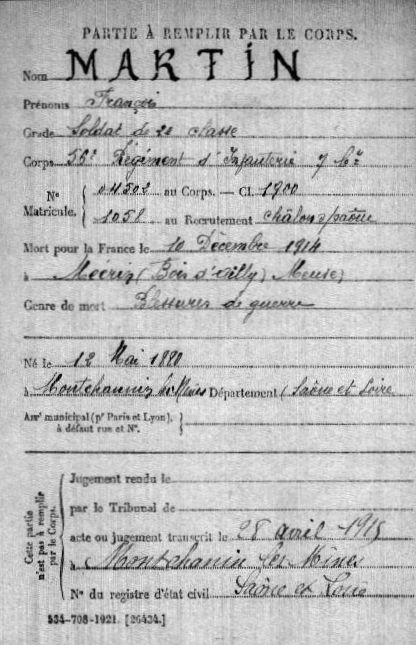 PARTIE À REMPLIR PAR LE CORPS.
Nom MARTIN
Prénoms François
Grade Soldat de 2e classe
Corps 56e Régiment d'Infanterie 7 Cie
N° Matricule. { 04502 au Corps. — Cl. 1900
1058 au Recrutement Châlon s/ Saône
Mort pour la France le 10 Décembre 1914
à Mécrin (Bois d'Ailly) Meuse)
Genre de mort Blessures de guerre
Né le 12 Mai 1880
à Montchanin les Mines Département (Saône et Loire
Arrt municipal (pr Paris et Lyon), }
à défaut rue et N°.
Cette partie n'est pas à remplir par le Corps.
Jugement rendu le
par le Tribunal de
acte ou jugement transcrit le 28 avril 1915
à Montchanin les Mines
N° du registre d'état civil Saône et Loire
534-708-1921. [26434.]